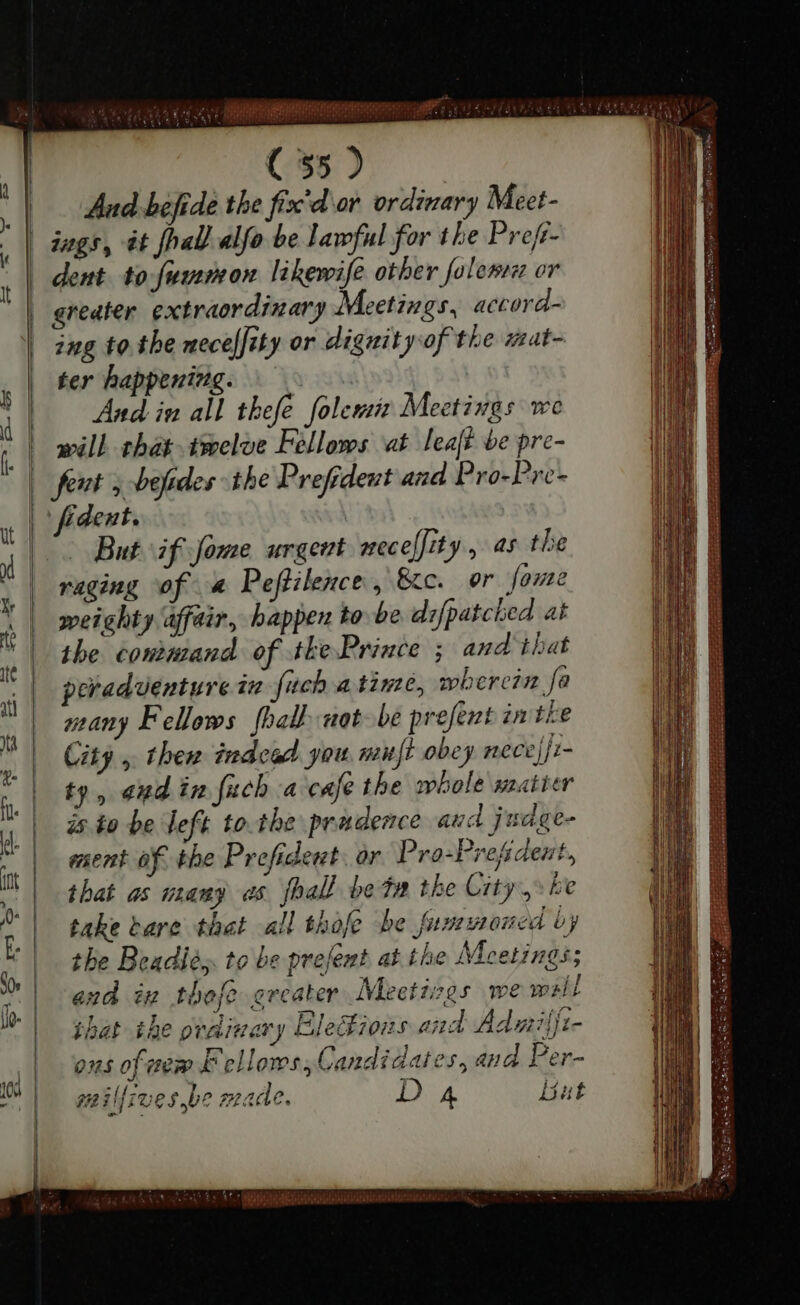 ( 55 )
And beſide the fix'd or ordinary Meet-
ings, it ſhall alſo be lawful for the Preſi-
dent to ſummon likewiſe other ſolemn or
greater extraordinary Meetings, accord-
ing to the neceſſity or dignity of the mat-
ter happening.
And in all theſe ſolemn Meetings we
will that twelve Fellows at leaſt be pre-
ſent, beſides the Preſident and Pro-Pre-
ſident.
But if ſome urgent neceſſity, as the
raging of a Peſtilence, &c. or ſome
weighty affair, happen to be diſpatched at
the command of the Prince ; and that
peradventure in ſuch a time, wherein ſo
many Fellows ſhall not be preſent in the
City, then indeed you muſt obey neceſſi-
ty, and in ſuch a caſe the whole matter
is to be left to the prudence and judge-
ment of the Preſident or Pro-Preſident,
that as many as ſhall be in the City, he
take care that all thoſe be ſummoned by
the Beadle, to be preſent at the Meetings;
and in thoſe greater Meetings we will
that the ordinary Elections and Admiſſi-
ons of new Fellows, Candidates, and Per-
miſſives be made.
D 4 But